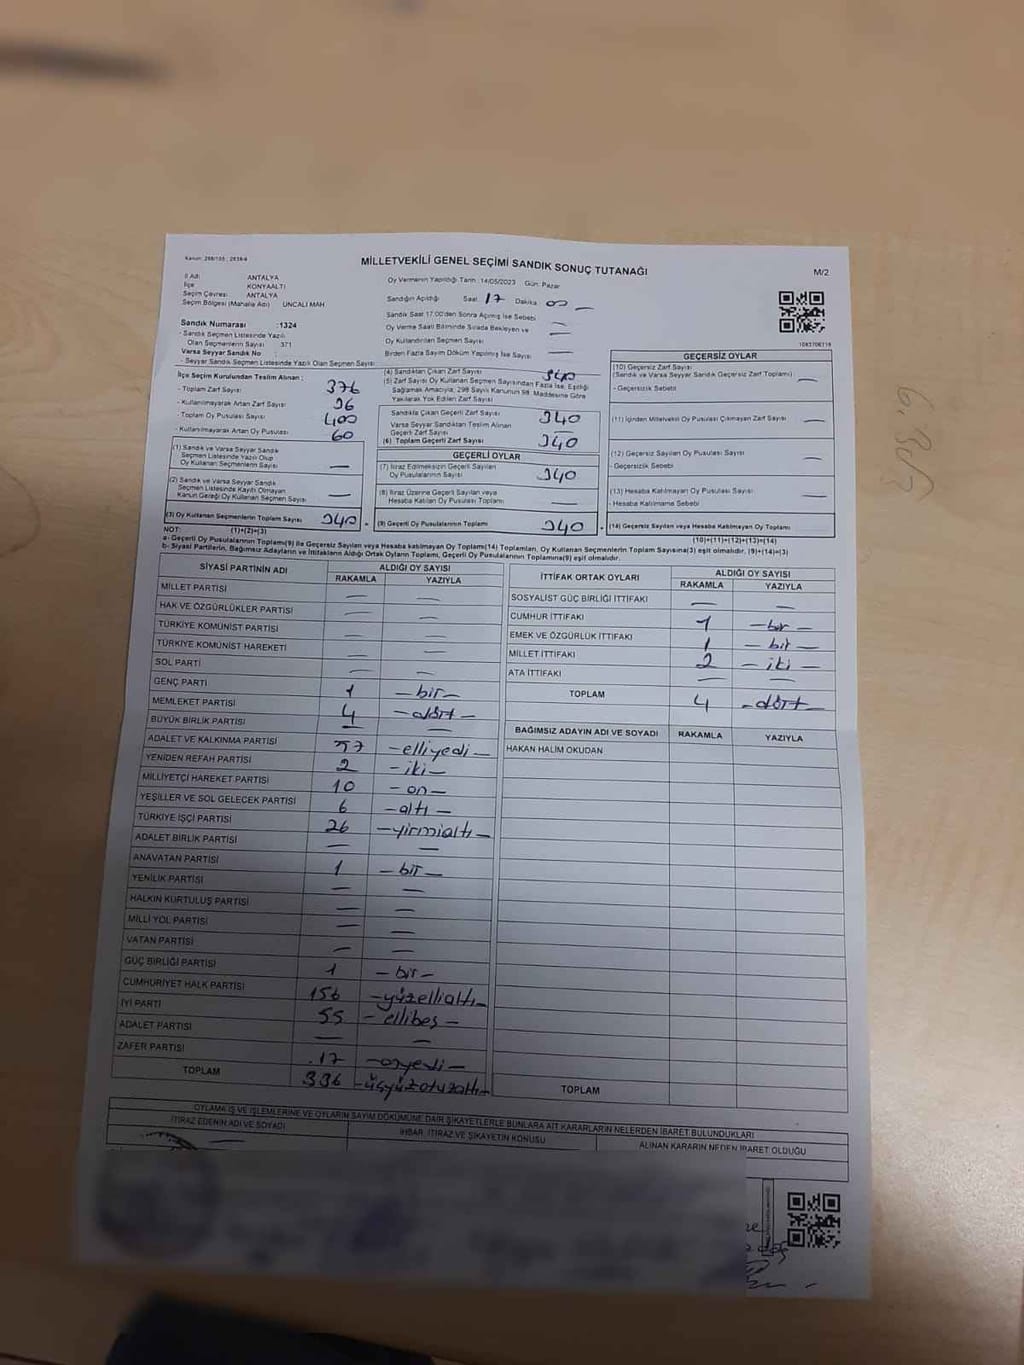 Kanun: 298/105 ; 2839/4
MİLLETVEKİLİ GENEL SEÇİMİ SANDIK SONUÇ TUTANAĞI
M/2
İl Adı : ANTALYA
İlçe : KONYAALTI
Seçim Çevresi : ANTALYA
Seçim Bölgesi (Mahalle Adı) : UNCALI MAH
Oy Vermenin Yapıldığı Tarih : 14/05/2023 Gün: Pazar
Sandığın Açıldığı Saat 17 Dakika 00
Sandık Saat 17:00'den Sonra Açılmış İse Sebebi —
Oy Verme Saati Bitiminde Sırada Bekleyen ve
Oy Kullandırılan Seçmen Sayısı —
Birden Fazla Sayım Döküm Yapılmış İse Sayısı —
Sandık Numarası : 1324
- Sandık Seçmen Listesinde Yazılı
Olan Seçmenlerin Sayısı 371
Varsa Seyyar Sandık No :
- Seyyar Sandık Seçmen Listesinde Yazılı Olan Seçmen Sayısı
İlçe Seçim Kurulundan Teslim Alınan :
- Toplam Zarf Sayısı 376
- Kullanılmayarak Artan Zarf Sayısı 36
- Toplam Oy Pusulası Sayısı 400
- Kullanılmayarak Artan Oy Pusulası 60
(1) Sandık ve Varsa Seyyar Sandık
Seçmen Listesinde Yazılı Olup
Oy Kullanan Seçmenlerin Sayısı —
(2) Sandık ve Varsa Seyyar Sandık
Seçmen Listesinde Kayıtlı Olmayan
Kanun Gereği Oy Kullanan Seçmen Sayısı —
(3) Oy Kullanan Seçmenlerin Toplam Sayısı 340
(1)+(2)=(3)
(4) Sandıktan Çıkan Zarf Sayısı 340
(5) Zarf Sayısı Oy Kullanan Seçmen Sayısından Fazla İse, Eşitliği
Sağlamak Amacıyla, 298 Sayılı Kanunun 98. Maddesine Göre
Yakılarak Yok Edilen Zarf Sayısı
Sandıkta Çıkan Geçerli Zarf Sayısı 340
Varsa Seyyar Sandıktan Teslim Alınan
Geçerli Zarf Sayısı —
(6) Toplam Geçerli Zarf Sayısı 340
GEÇERLİ OYLAR
(7) İtiraz Edilmeksizin Geçerli Sayılan
Oy Pusulalarının Sayısı 340
(8) İtiraz Üzerine Geçerli Sayılan veya
Hesaba Katılan Oy Pusulası Toplamı —
(9) Geçerli Oy Pusulalarının Toplamı 340
GEÇERSİZ OYLAR
(10) Geçersiz Zarf Sayısı
(Sandık ve Varsa Seyyar Sandık Geçersiz Zarf Toplamı) —
- Geçersizlik Sebebi
(11) İçinden Milletvekili Oy Pusulası Çıkmayan Zarf Sayısı —
(12) Geçersiz Sayılan Oy Pusulası Sayısı —
- Geçersizlik Sebebi
(13) Hesaba Katılmayan Oy Pusulası Sayısı —
- Hesaba Katılmama Sebebi
(14) Geçersiz Sayılan veya Hesaba Katılmayan Oy Toplamı
(10)+(11)+(12)+(13)=(14)
NOT:
a- Geçerli Oy Pusulalarının Toplamı(9) ile Geçersiz Sayılan veya Hesaba katılmayan Oy Toplamı(14) Toplamları, Oy Kullanan Seçmenlerin Toplam Sayısına(3) eşit olmalıdır. (9)+(14)=(3)
b- Siyasi Partilerin, Bağımsız Adayların ve İttifakların Aldığı Ortak Oyların Toplamı, Geçerli Oy Pusulalarının Toplamına(9) eşit olmalıdır.
SİYASİ PARTİNİN ADI ALDIĞI OY SAYISI
RAKAMLA YAZIYLA
MİLLET PARTİSİ — —
HAK VE ÖZGÜRLÜKLER PARTİSİ — —
TÜRKİYE KOMÜNİST PARTİSİ — —
TÜRKİYE KOMÜNİST HAREKETİ — —
SOL PARTİ — —
GENÇ PARTİ 1 —bir—
MEMLEKET PARTİSİ 4 —dört—
BÜYÜK BİRLİK PARTİSİ — —
ADALET VE KALKINMA PARTİSİ 57 —elliyedi—
YENİDEN REFAH PARTİSİ 2 —iki—
MİLLİYETÇİ HAREKET PARTİSİ 10 —on—
YEŞİLLER VE SOL GELECEK PARTİSİ 6 —altı—
TÜRKİYE İŞÇİ PARTİSİ 26 —yirmialtı—
ADALET BİRLİK PARTİSİ — —
ANAVATAN PARTİSİ 1 —bir—
YENİLİK PARTİSİ — —
HALKIN KURTULUŞ PARTİSİ — —
MİLLİ YOL PARTİSİ — —
VATAN PARTİSİ — —
GÜÇ BİRLİĞİ PARTİSİ 1 —bir—
CUMHURİYET HALK PARTİSİ 156 —yüzellialtı—
İYİ PARTİ 55 —ellibeş—
ADALET PARTİSİ — —
ZAFER PARTİSİ 17 —onyedi—
TOPLAM 336 —üçyüzotuzaltı—
İTTİFAK ORTAK OYLARI ALDIĞI OY SAYISI
RAKAMLA YAZIYLA
SOSYALİST GÜÇ BİRLİĞİ İTTİFAKI — —
CUMHUR İTTİFAKI 1 —bir—
EMEK VE ÖZGÜRLÜK İTTİFAKI 1 —bir—
MİLLET İTTİFAKI 2 —iki—
ATA İTTİFAKI — —
TOPLAM 4 —dört—
BAĞIMSIZ ADAYIN ADI VE SOYADI RAKAMLA YAZIYLA
HAKAN HALİM OKUDAN
TOPLAM
OYLAMA İŞ VE İŞLEMLERİNE VE OYLARIN SAYIM DÖKÜMÜNE DAİR ŞİKAYETLERLE BUNLARA AİT KARARLARIN NELERDEN İBARET BULUNDUKLARI
İTİRAZ EDENİN ADI VE SOYADI İHBAR, İTİRAZ VE ŞİKAYETİN KONUSU ALINAN KARARIN NEDEN İBARET OLDUĞU